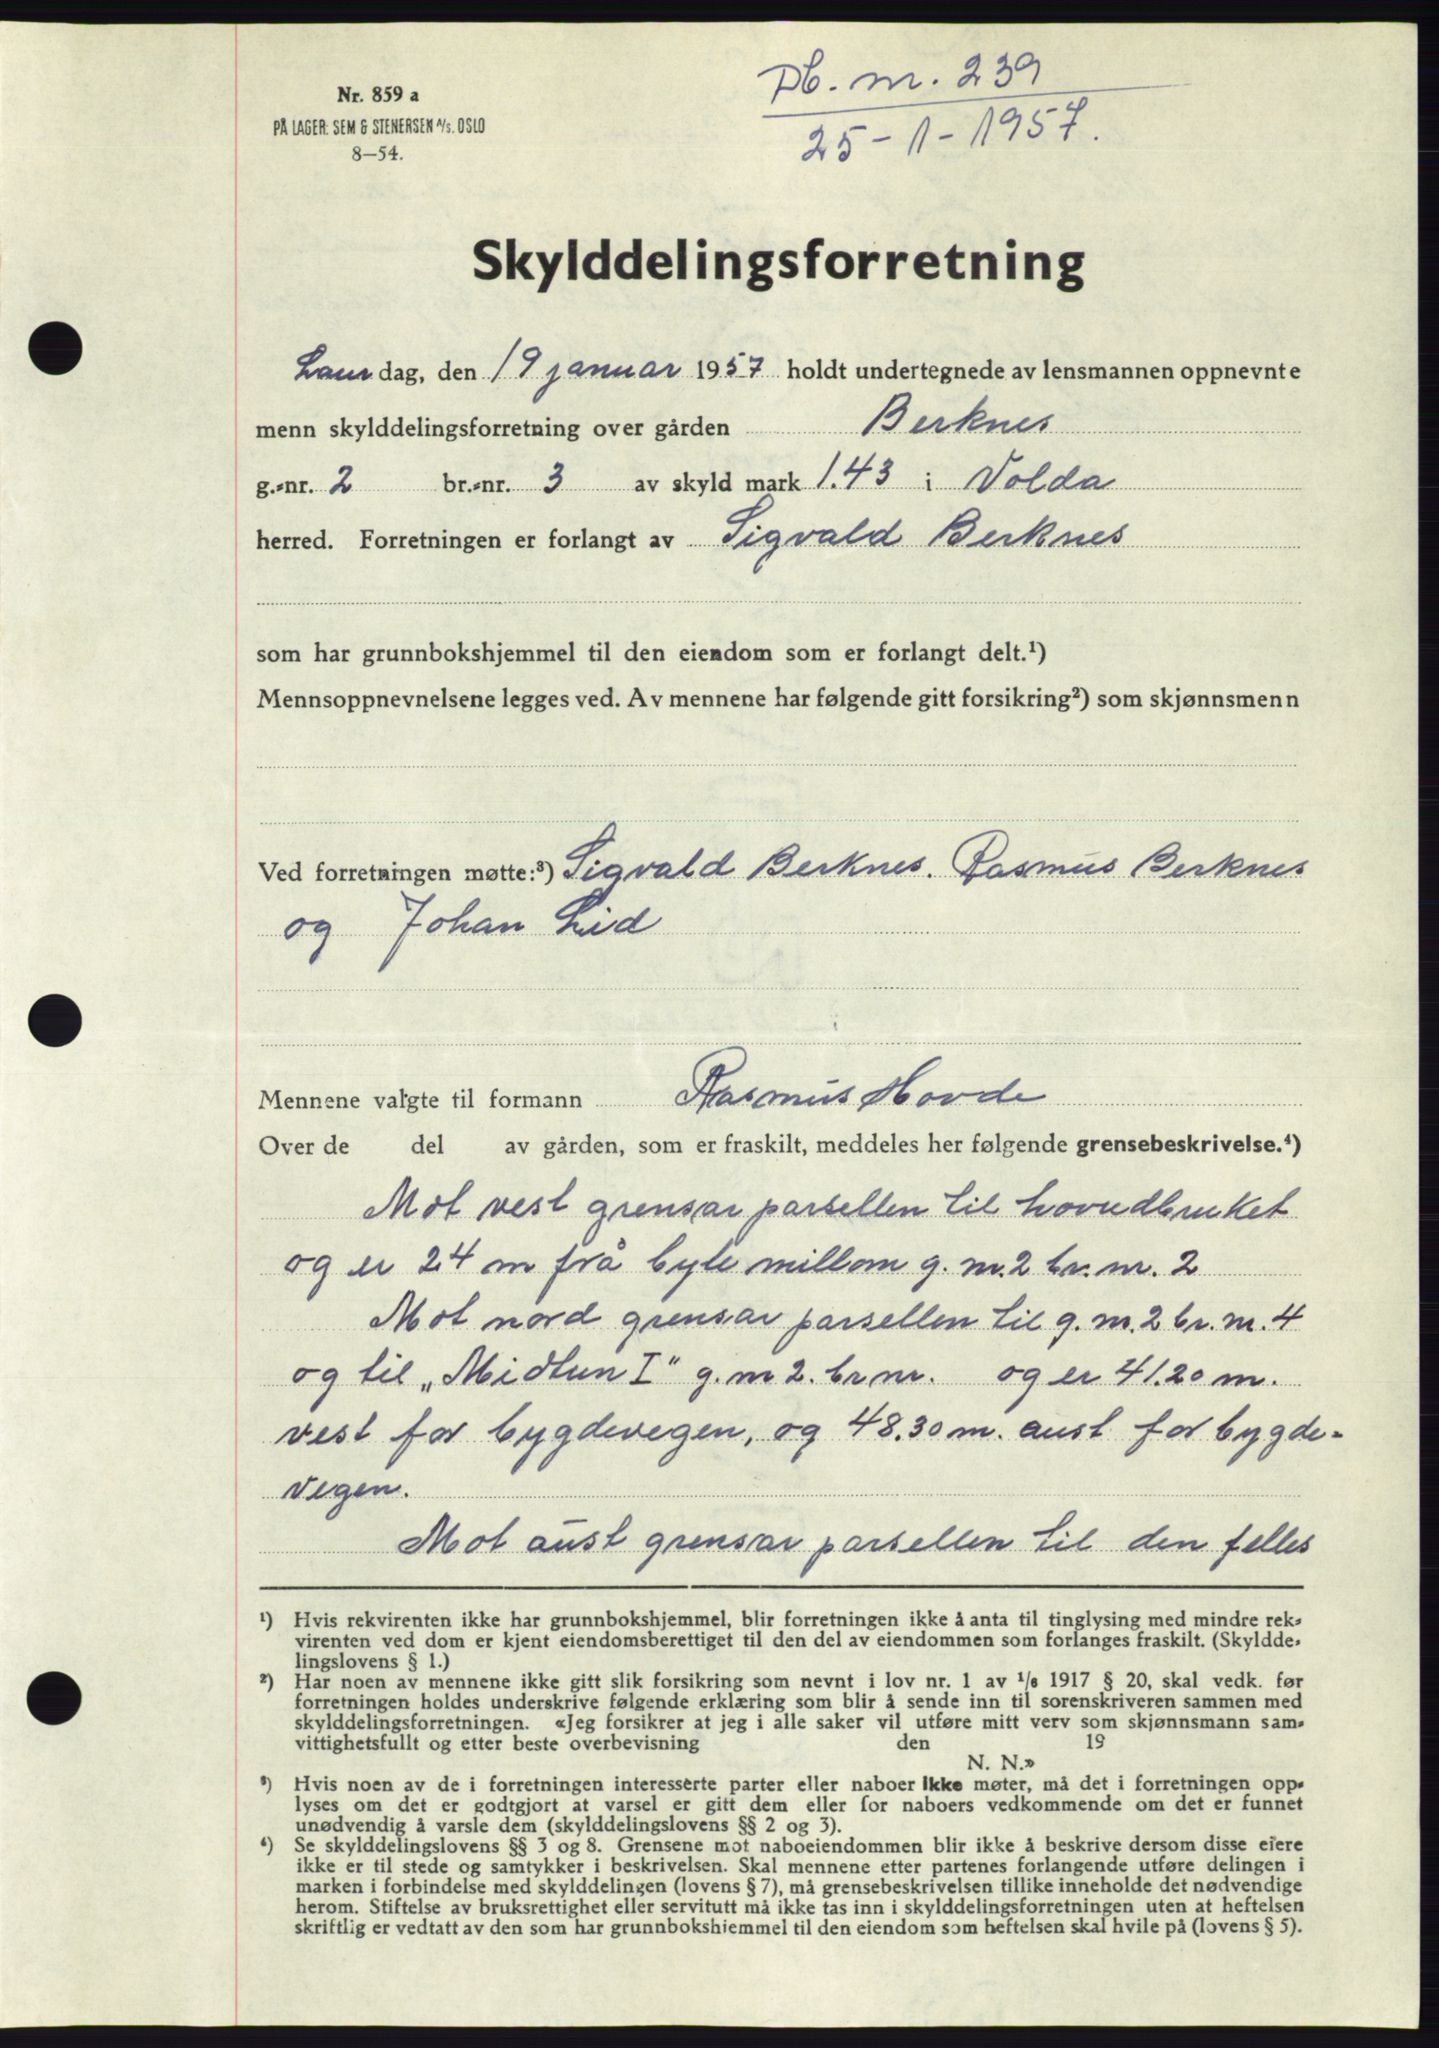 Nr. 859 a
PÅ LAGER: SEM & STENERSEN A/S. OSLO
8—54.
Db. nr. 239
25-1-1957.
Skylddelingsforretning
Laur dag, den 19 januar 1957 holdt undertegnede av lensmannen oppnevnte
menn skylddelingsforretning over gården Berknes
g.-nr. 2 br.-nr. 3 av skyld mark 1.43 i Volda
herred. Forretningen er forlangt av Sigvald Berknes
som har grunnbokshjemmel til den eiendom som er forlangt delt.¹)
Mennsoppnevnelsene legges ved. Av mennene har følgende gitt forsikring²) som skjønnsmenn
Ved forretningen møtte:³) Sigvald Berknes. Rasmus Berknes
og Johan Lid
Mennene valgte til formann Rasmus Hovde
Over de del av gården, som er fraskilt, meddeles her følgende grensebeskrivelse.⁴)
Mot vest grensar parsellen til hovudbruket
og er 24 m frå byte millom g. nr. 2 br. nr. 2
Mot nord grensar parsellen til g. nr. 2 br. nr. 4
og til „Midtun I" g. nr 2. br nr. og er 41.20 m.
vest for bygdevegen, og 48.30 m. aust for bygde-
vegen.
Mot aust grensar parsellen til den felles
¹) Hvis rekvirenten ikke har grunnbokshjemmel, blir forretningen ikke å anta til tinglysing med mindre rek-
virenten ved dom er kjent eiendomsberettiget til den del av eiendommen som forlanges fraskilt. (Skyldde-
lingslovens § 1.)
²) Har noen av mennene ikke gitt slik forsikring som nevnt i lov nr. 1 av 1/6 1917 § 20, skal vedk. før
forretningen holdes underskrive følgende erklæring som blir å sende inn til sorenskriveren sammen med
skylddelingsforretningen. «Jeg forsikrer at jeg i alle saker vil utføre mitt verv som skjønnsmann sam-
vittighetsfullt og etter beste overbevisning den 19
N. N.»
³) Hvis noen av de i forretningen interesserte parter eller naboer ikke møter, må det i forretningen opp-
lyses om det er godtgjort at varsel er gitt dem eller for naboers vedkommende om det er funnet
unødvendig å varsle dem (skylddelingslovens §§ 2 og 3).
⁴) Se skylddelingslovens §§ 3 og 8. Grensene mot naboeiendommen blir ikke å beskrive dersom disse eiere
ikke er til stede og samtykker i beskrivelsen. Skal mennene etter partenes forlangende utføre delingen i
marken i forbindelse med skylddelingen (lovens § 7), må grensebeskrivelsen tillike inneholde det nødvendige
herom. Stiftelse av bruksrettighet eller servitutt må ikke tas inn i skylddelingsforretningen uten at heftelsen
skriftlig er vedtatt av den som har grunnbokshjemmel til den eiendom som heftelsen skal hvile på (lovens § 5).